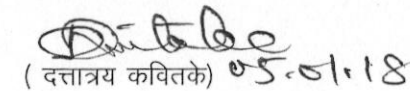 ( दत्तात्रय कवितके) 05.01.18